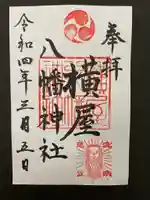 奉拝
横屋
八幡神社
令和四年三月五日